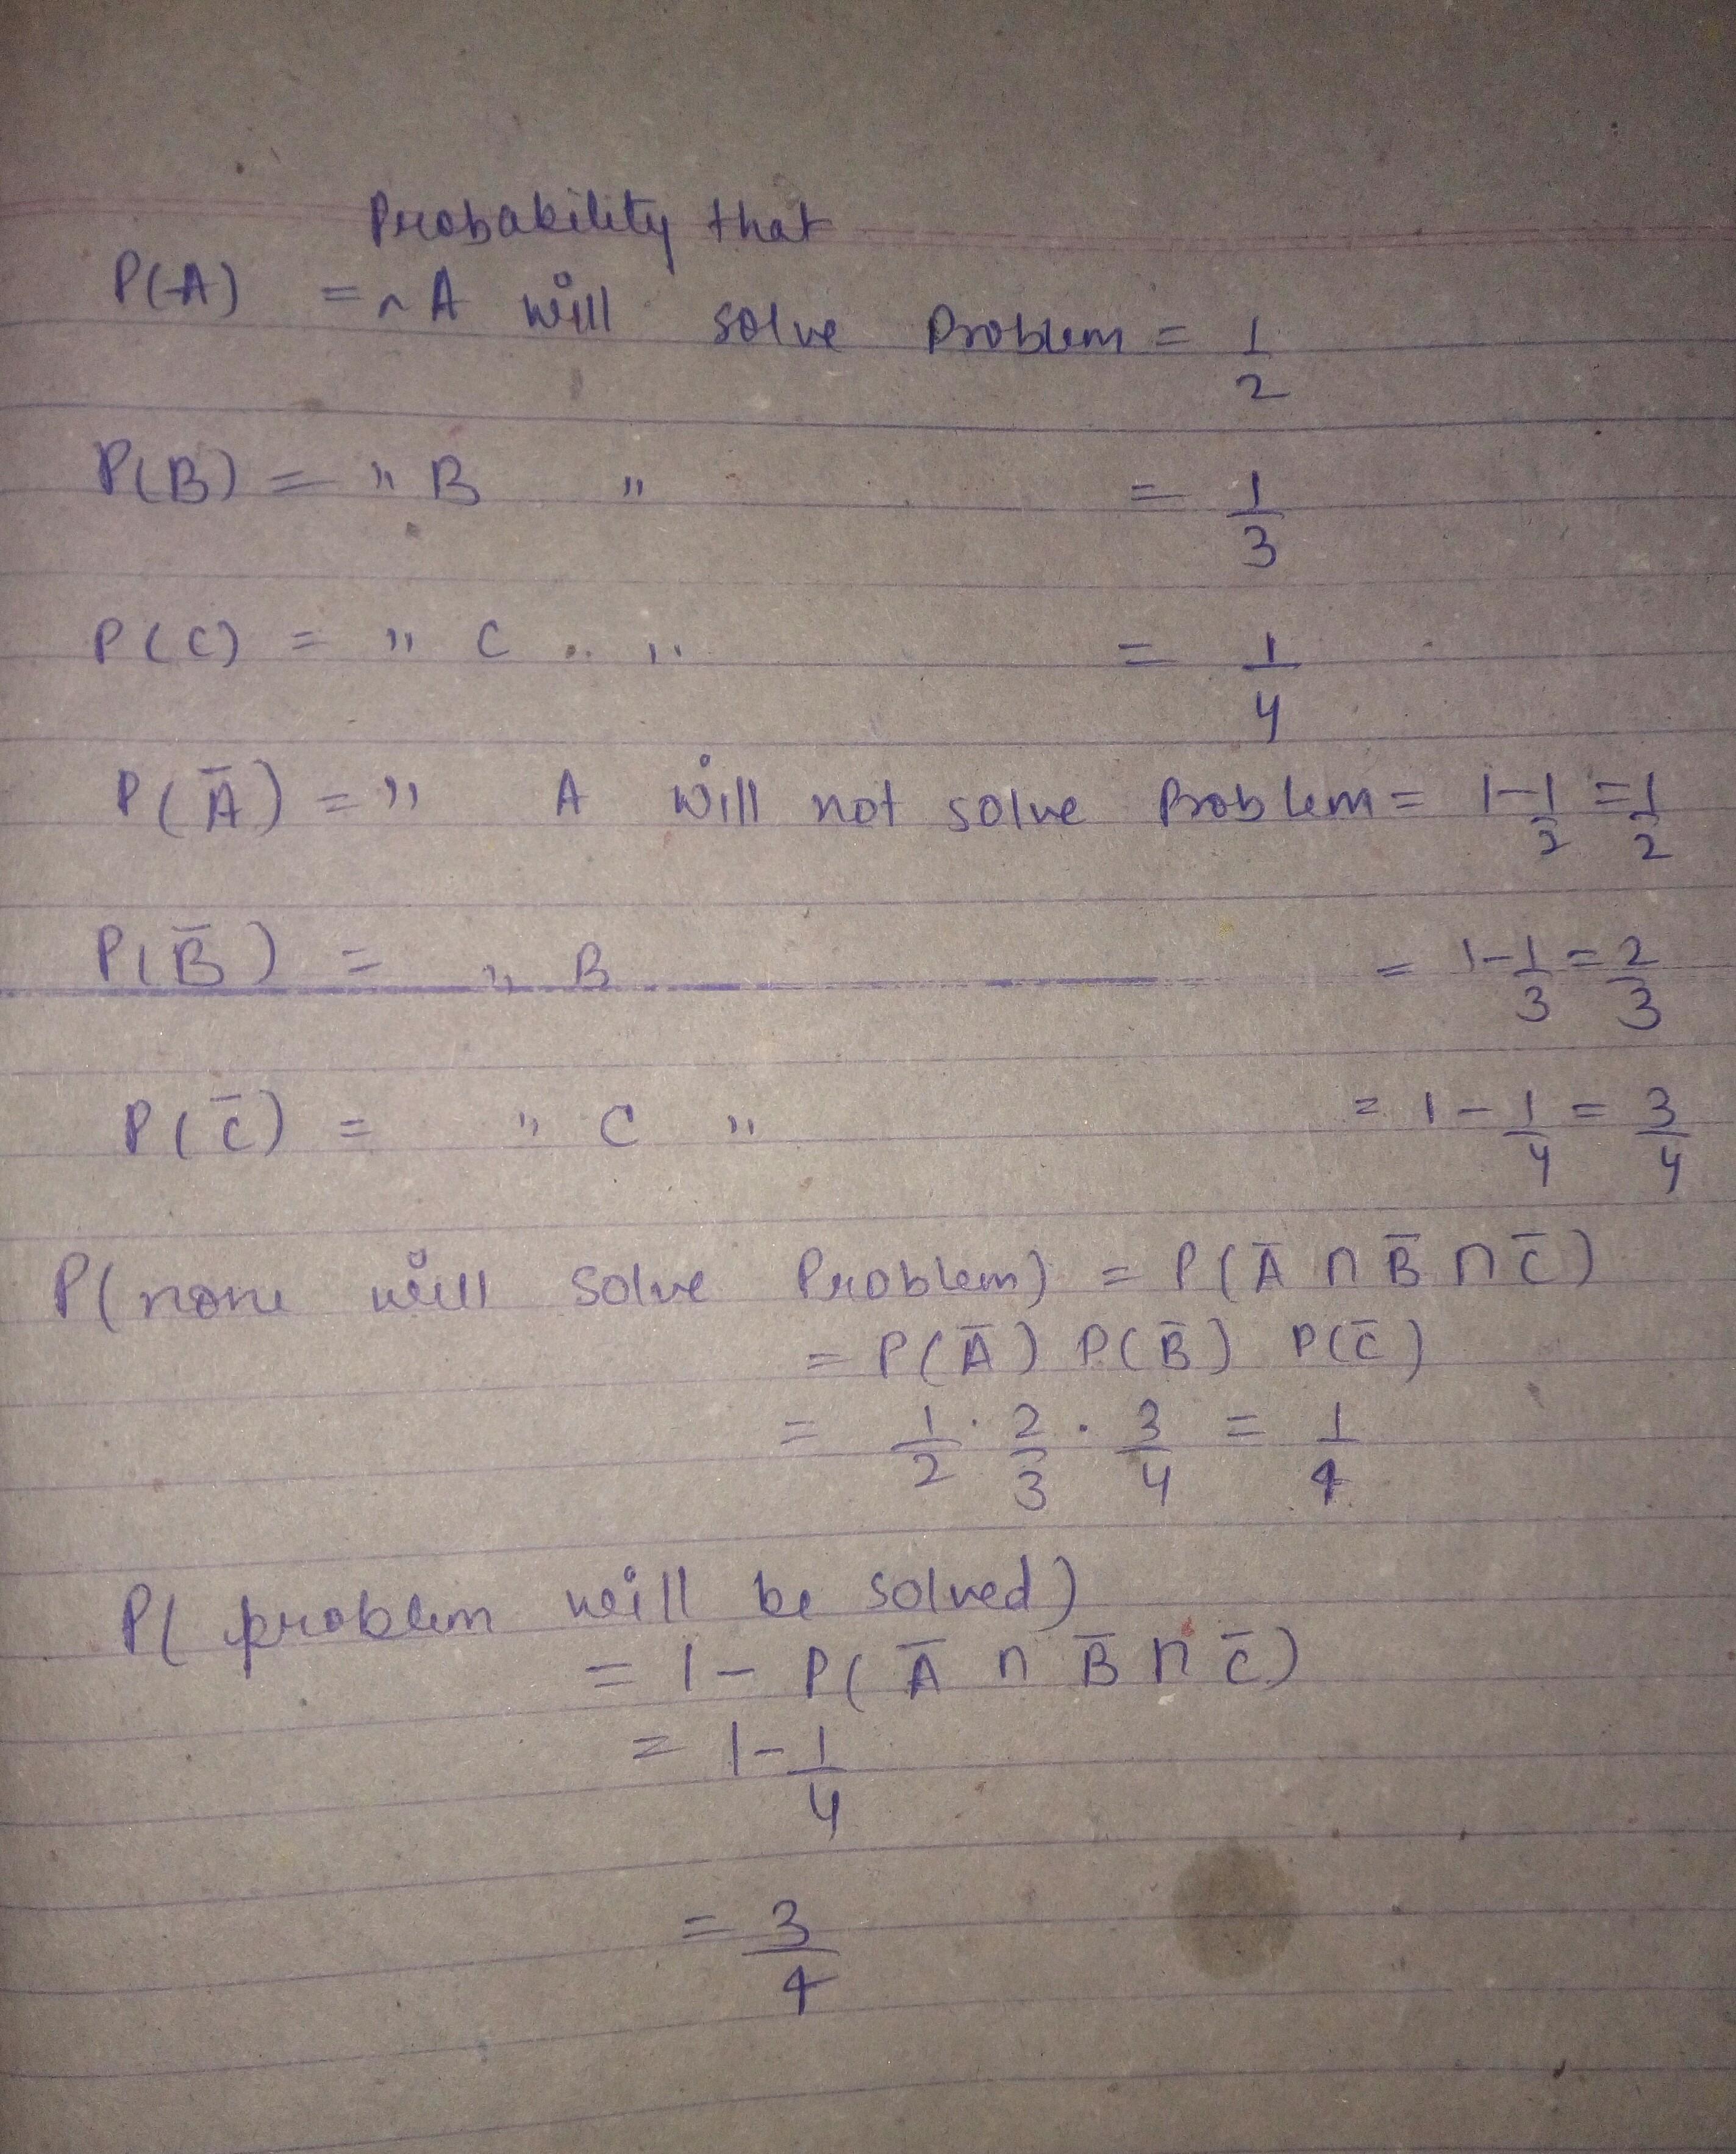 Probability that
P(A) = ^ A will solve Problem = 1/2
P(B) = " B " = 1/3
P(C) = " C " " = 1/4
P(Ā) = " A will not solve Problem = 1-1/2 = 1/2
P(B̄) = " B = 1-1/3 = 2/3
P(C̄) = " C " = 1-1/4 = 3/4
P(none will solve Problem) = P(Ā ∩ B̄ ∩ C̄)
= P(Ā) P(B̄) P(C̄)
= 1/2 · 2/3 · 3/4 = 1/4
P( problem will be solved)
= 1 - P( Ā ∩ B̄ ∩ C̄)
= 1-1/4
= 3/4